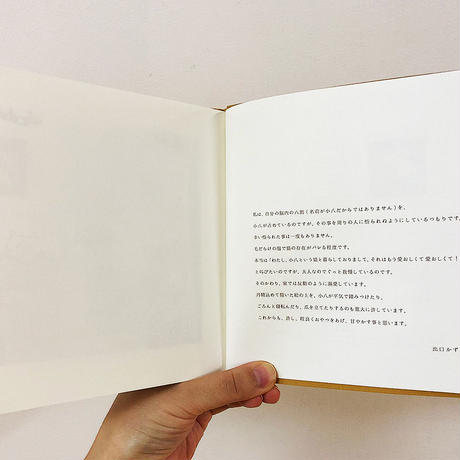 私は、自分の脳内の八割(名前が小八だからではありません)を、
小八が占めているのですが、その事を周りの人に悟られぬようにしているつもりです。
まい悟られた事は一度もありません。
毛だらけの服で猫の存在がバレる程度です。
本当は「わたし、小八という猫と暮らしておりまして、それはもう愛おしくて 愛おしくて!
と叫びたいのですが、大人なのでぐっと我慢しているのです。
そのかわり、家では反動のように溺愛しています。
丹精込めて描いた絵の上を、小八が平気で踏みつけたり、
ごろんと寝転んだり、爪を立てたりするのも寛大に許しています。
これからも、許し、程良くおやつをあげ、甘やかす事と思います。
出口かず